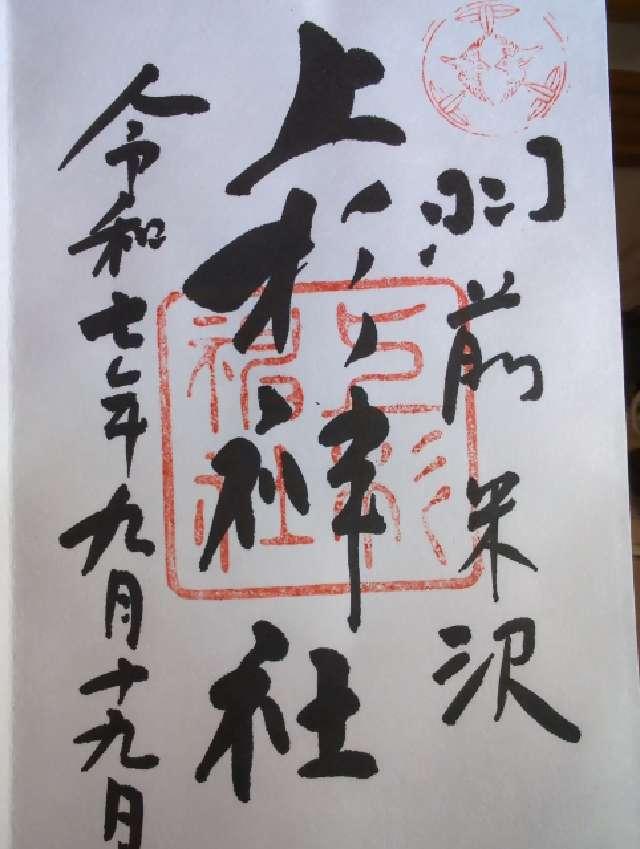 羽前米沢
上杉神社
令和七年九月十九日